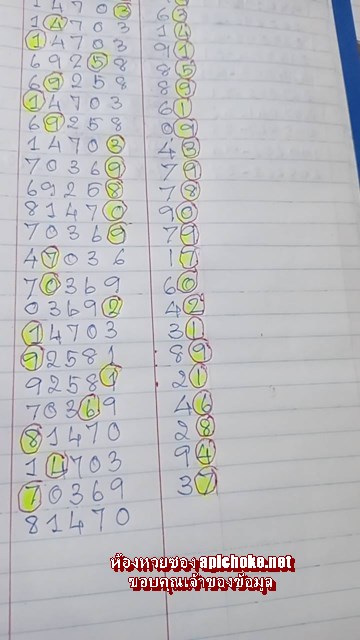 14703 63
14703 14
14703 91
69258 85
69258 89
14703 61
69258 09
14703 43
70369 79
69258 78
81470 90
70369 79
47036 17
70369 60
03692 42
14703 31
92581 89
92581 21
70369 46
81470 28
14703 94
70369 37
81470
ห้องหวยซอง apichoke.net
ขอบคุณเจ้าของข้อมูล